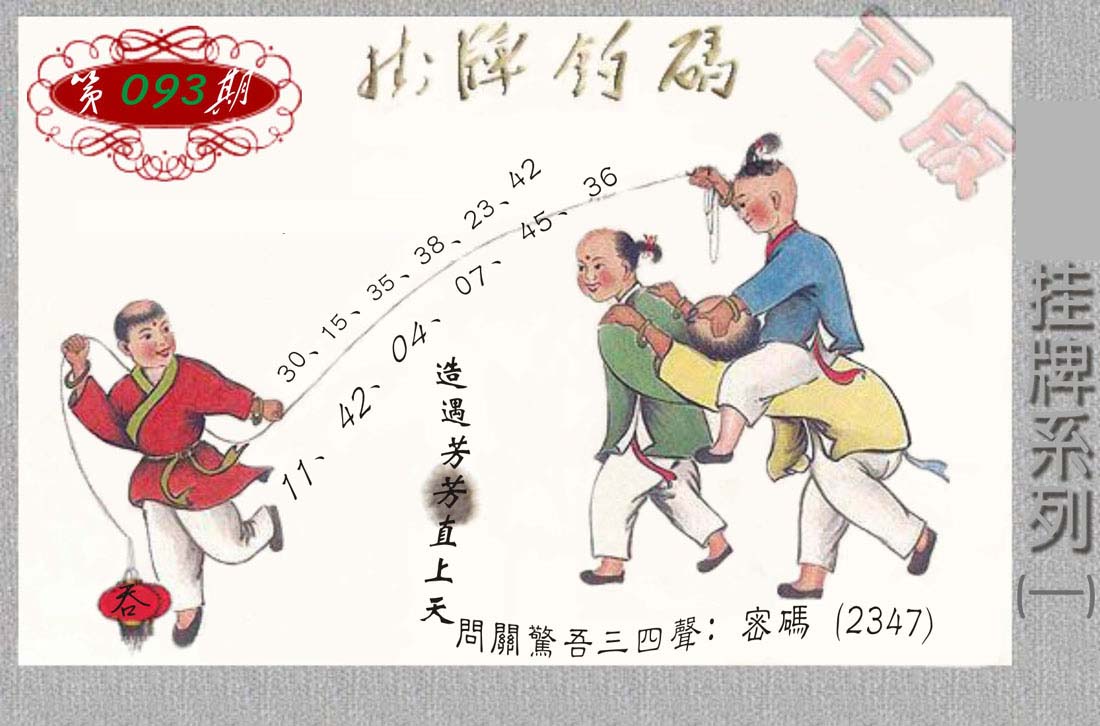 第093期
掛牌釣碼
正版
30、15、35、38、23、42
11、42、04、07、45、36
造遇芳芳直上天
吞
問關驚吾三四聲：密碼（2347）
挂牌系列(一)